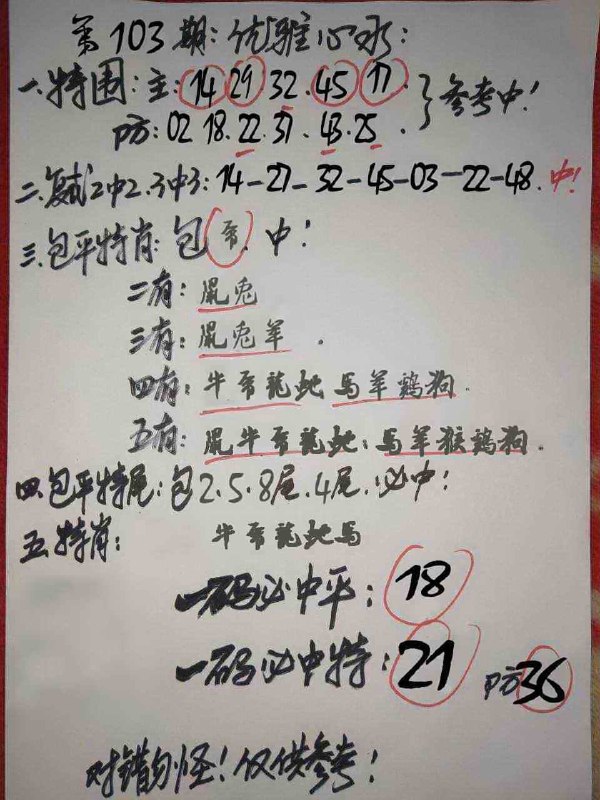 第103期:优雅心水:
一.特围:主:14 29 32.45 17. }参考中!
防:02 18.22.31.43.25.
二.复式2中2.3中3:14-27-32-45-03-22-48.中!
三.包平特肖:包 中!
二有:鼠兔
三有:鼠兔羊.
四有:牛虎龍蛇 馬羊鷄狗.
五有:鼠牛虎龍蛇:馬羊猴鷄狗.
四.包平特尾:包2.5.8尾.4尾.必中!
五.特肖: 牛虎龍蛇馬
一码必中平:18
一码必中特:21 防36
对错勿怪!仅供参考!